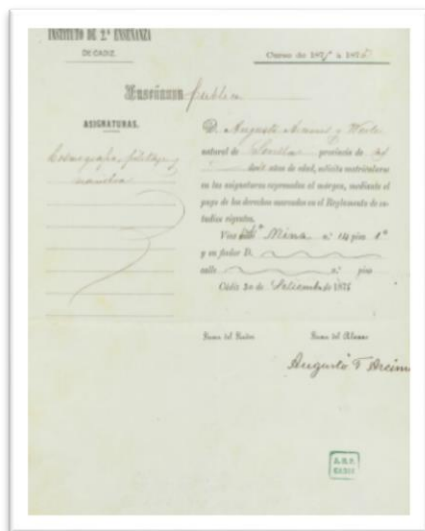 INSTITUTO DE 2.ª ENSEÑANZA
DE CADIZ.
Curso de 187 á 187
Enseñanza pública
ASIGNATURAS.
Cosmografía, pilotaje y
maniobra
D. Augusto Arcimis y Werle
natural de Sevilla provincia de
años de edad, solicita matricularse
en las asignaturas expresadas al márgen, mediante el
pago de los derechos marcados en el Reglamento de es-
tudios vigentes.
Vive Mina n.º 14 piso 1º
y su fiador D.
calle n.º piso
Cádiz 30 de Setiembre de 1875
Firma del Fiador Firma del Alumno
Augusto T Arcimis
A.H.P.
CADIZ